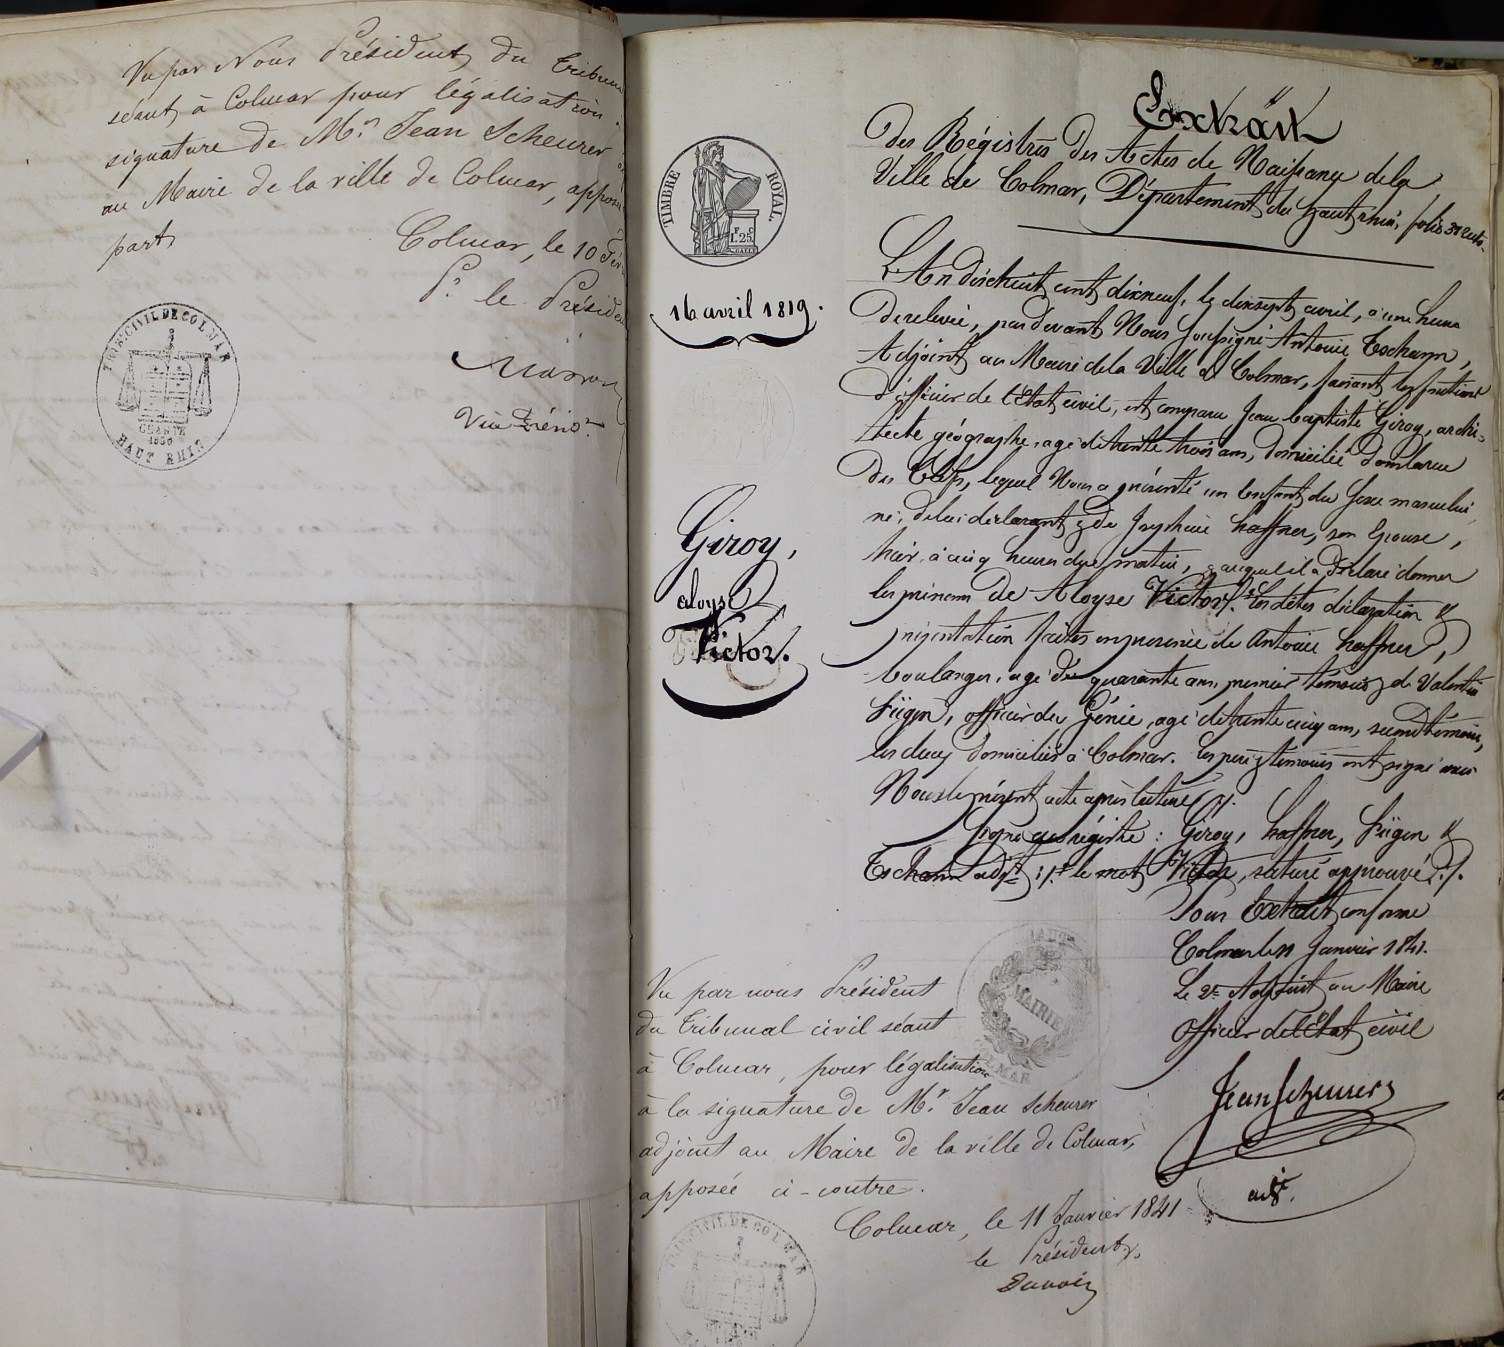 Vu par Nous Président du Tribun
séant à Colmar pour légalisation
signature de Mr. Jean Scheurer
au Maire de la ville de Colmar, apposée
part
Colmar, le 10 Fév
Pr. le Présiden
TRIB. CIVIL DE COLMAR
CHARTE
1830
HAUT RHIN
Extrait
des Régistres des Actes de Naissance de la
Ville de Colmar, Département du haut rhin, folio 31 recto.
TIMBRE ROYAL.
F. C.
1.25.
16 avril 1819.
L'An dixhuit cent dixneuf, le dixsept avril, à une heure
de relevée, par devant Nous soussigné Antoine Tschann,
Adjoint au Maire de la Ville de Colmar, faisant les fonctions
d'officier de l'Etat civil, est comparu Jean baptiste Giroy, archi-
tecte géographe, agé de trente trois ans, domicilié dans la rue
des Clefs, lequel Nous a présenté un Enfant du sexe masculin
né, de lui déclarant & de Josephine haffner, son Epouse,
hier, à cinq heures du matin, & auquel il a déclaré donner
les prénoms de Aloyse Victor /. Les dites déclaration &
présentation faites en présence de Antoine haffner,
boulanger, agé de quarante ans, premier témoin & de Valentin
Fügen, officier du Génie, agé de trente cinq ans, second témoin,
les deux domiciliés à Colmar. Les père & témoins ont signé avec
Nous le présent acte après lecture /.
Signé au régistre : Giroy, haffner, Fügen &
Tschann adjt. ./. le mot Victor, raturé approuvé ./.
Giroy,
aloyse
Victor.
Pour Extrait conforme
Colmar le 11 Janvier 1841.
Le 2e Adjoint au Maire
Officier de l'Etat civil
Jean Scheurer
adjt.
MAIRIE
COLMAR
Vu par nous Président
du Tribunal civil séant
à Colmar, pour légalisation
à la signature de Mr. Jean Scheurer
adjoint au Maire de la ville de Colmar,
apposée ci-contre.
Colmar, le 11 Janvier 1841
le Président
TRIB. CIVIL DE COLMAR